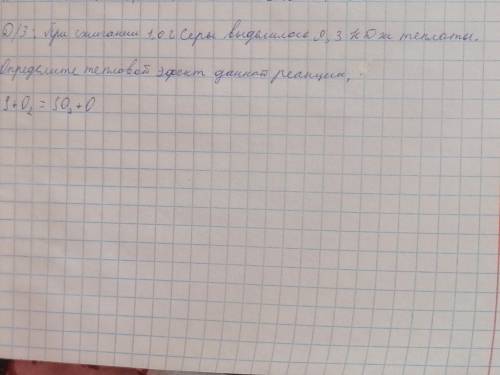 Д/З: При сжигании 1,0 г Серы выделилось 9, 3 кДж теплоты.
Определите тепловой эфект данной реакции,
S+O₂ = SO₂+Q